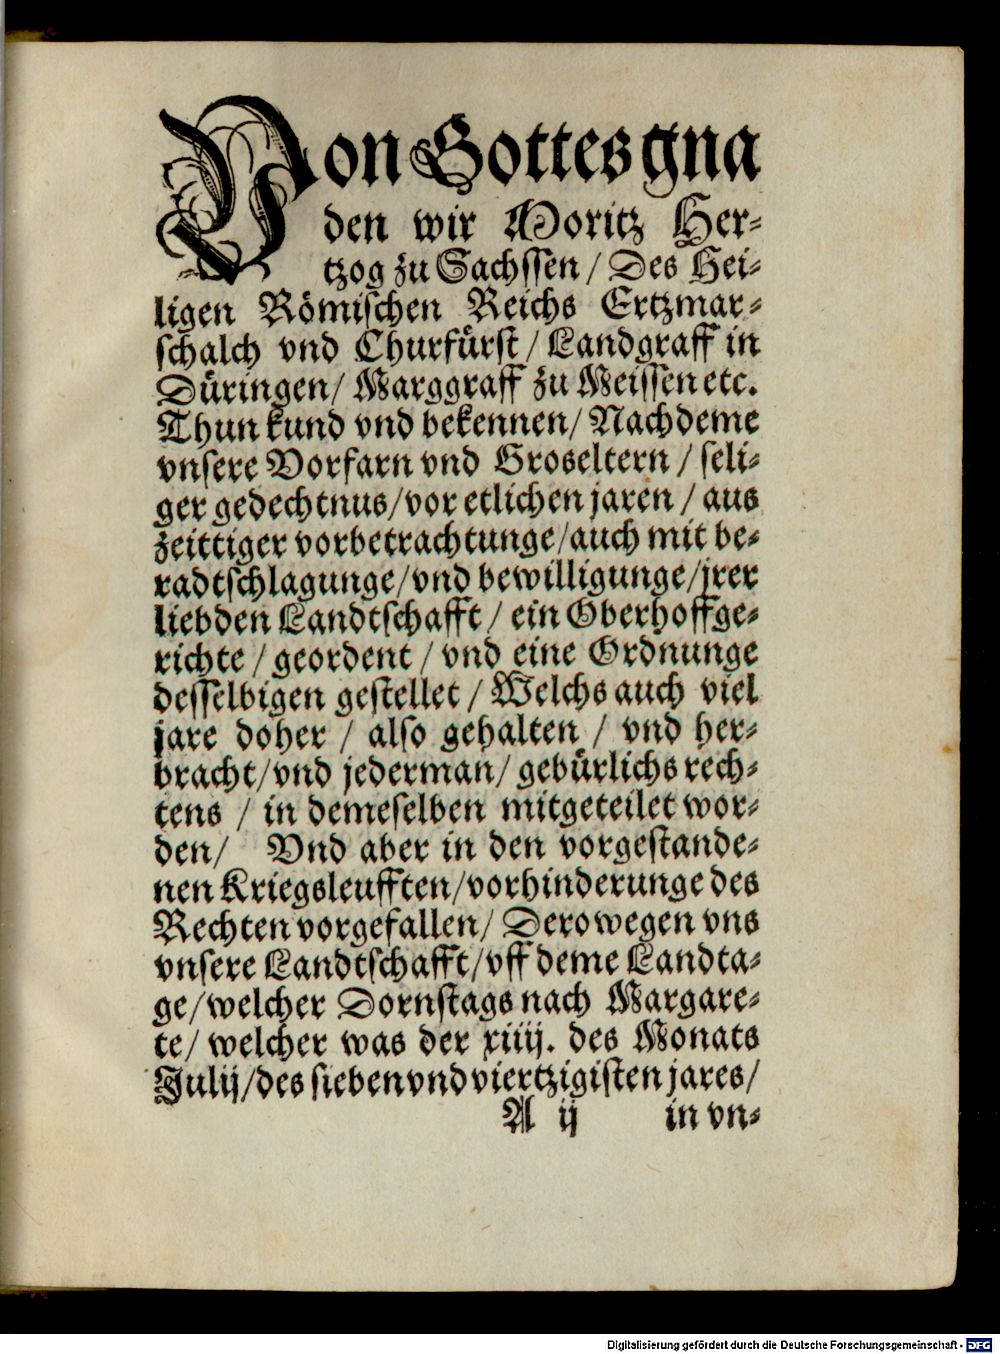 Von Gottes gna
den wir Moritz Her-
tzog zu Sachssen / Des Hei-
ligen Römischen Reichs Ertzmar-
schalch vnd Churfürst / Landgraff in
Düringen / Marggraff zu Meissen etc.
Thun kund vnd bekennen / Nachdeme
vnsere Vorfarn vnd Groseltern / seli-
ger gedechtnus / vor etlichen jaren / aus
zeittiger vorbetrachtunge / auch mit be-
radtschlagunge / vnd bewilligunge / jrer
liebden Landtschafft / ein Oberhoffge-
richte / geordent / vnd eine Ordnunge
desselbigen gestellet / Welchs auch viel
jare doher / also gehalten / vnd her-
bracht / vnd jederman / gebürlichs rech-
tens / in demeselben mitgeteilet wor-
den / Vnd aber in den vorgestande-
nen Kriegsleufften / vorhinderunge des
Rechten vorgefallen / Derowegen vns
vnsere Landtschafft / vff deme Landta-
ge / welcher Dornstags nach Margare-
te / welcher was der xiiij. des Monats
Julij / des sieben vnd viertzigisten jares /
A ij in vn-
Digitalisierung gefördert durch die Deutsche Forschungsgemeinschaft - DFG